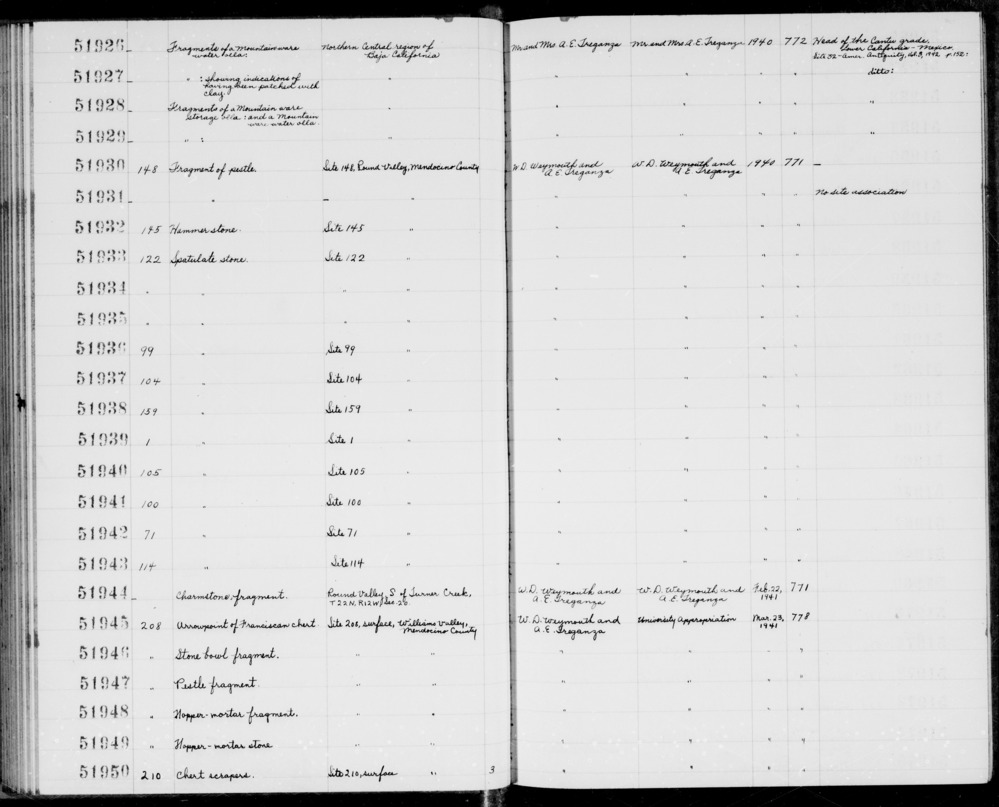 51926 Fragments of a Mountain ware water olla. Northern Central region of Baja California Mr and Mrs. A. E. Treganza Mr and Mrs A. E. Treganza 1940 772 Head of the Cantu grade, Lower California - Mexico. Site 32 - Amer. Antiquity, 1942 p. 152:
51927 " : showing indications of having been patched with clay " " " " " ditto:
51928 Fragments of a Mountain ware storage olla : and a Mountain ware water olla. " " " " " "
51929 " " : " " " " " "
51930 148 Fragment of pestle. Site 148, Round Valley, Mendocino County W. D. Weymouth and A. E. Treganza W. D. Weymouth and A. E. Treganza 1940 771 —
51931 " – " " " " " No site association
51932 145 Hammer stone. Site 145 " " " " "
51933 122 Spatulate stone. Site 122 " " " " "
51934 " " " " " " " "
51935 " " " " " " " "
51936 99 " Site 99 " " " " "
51937 104 " Site 104 " " " " "
51938 159 " Site 159 " " " " "
51939 1 " Site 1 " " " " "
51940 105 " Site 105 " " " " "
51941 100 " Site 100 " " " " "
51942 71 " Site 71 " " " " "
51943 114 " Site 114 " " " " "
51944 Charmstone, fragment. Round Valley, S of Turner Creek, T22N, R12W, Sec. 26 W. D. Weymouth and A. E. Treganza W. D. Weymouth and A. E. Treganza Feb. 22, 1941 771
51945 208 Arrowpoint of Franciscan chert Site 208, surface, Williams Valley, Mendocino County W. D. Weymouth and A. E. Treganza University Appropriation Mar. 23, 1941 778
51946 " Stone bowl fragment. " " " " " "
51947 " Pestle fragment. " " " " " "
51948 " Hopper-mortar fragment. " " " " " "
51949 " Hopper-mortar stone " " " " " "
51950 210 Chert scrapers. Site 210, surface " 3 " " " "